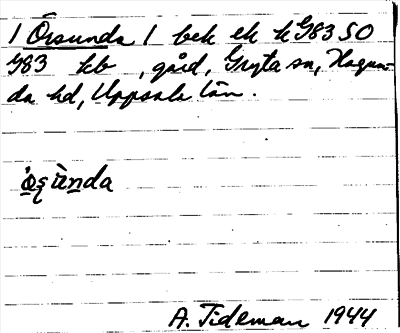 / Örsunda / bek ek k G83 SO
G83 kb , gård, Gryta sn, Hagun=
da hd, Uppsala län.
A. Tideman 1944